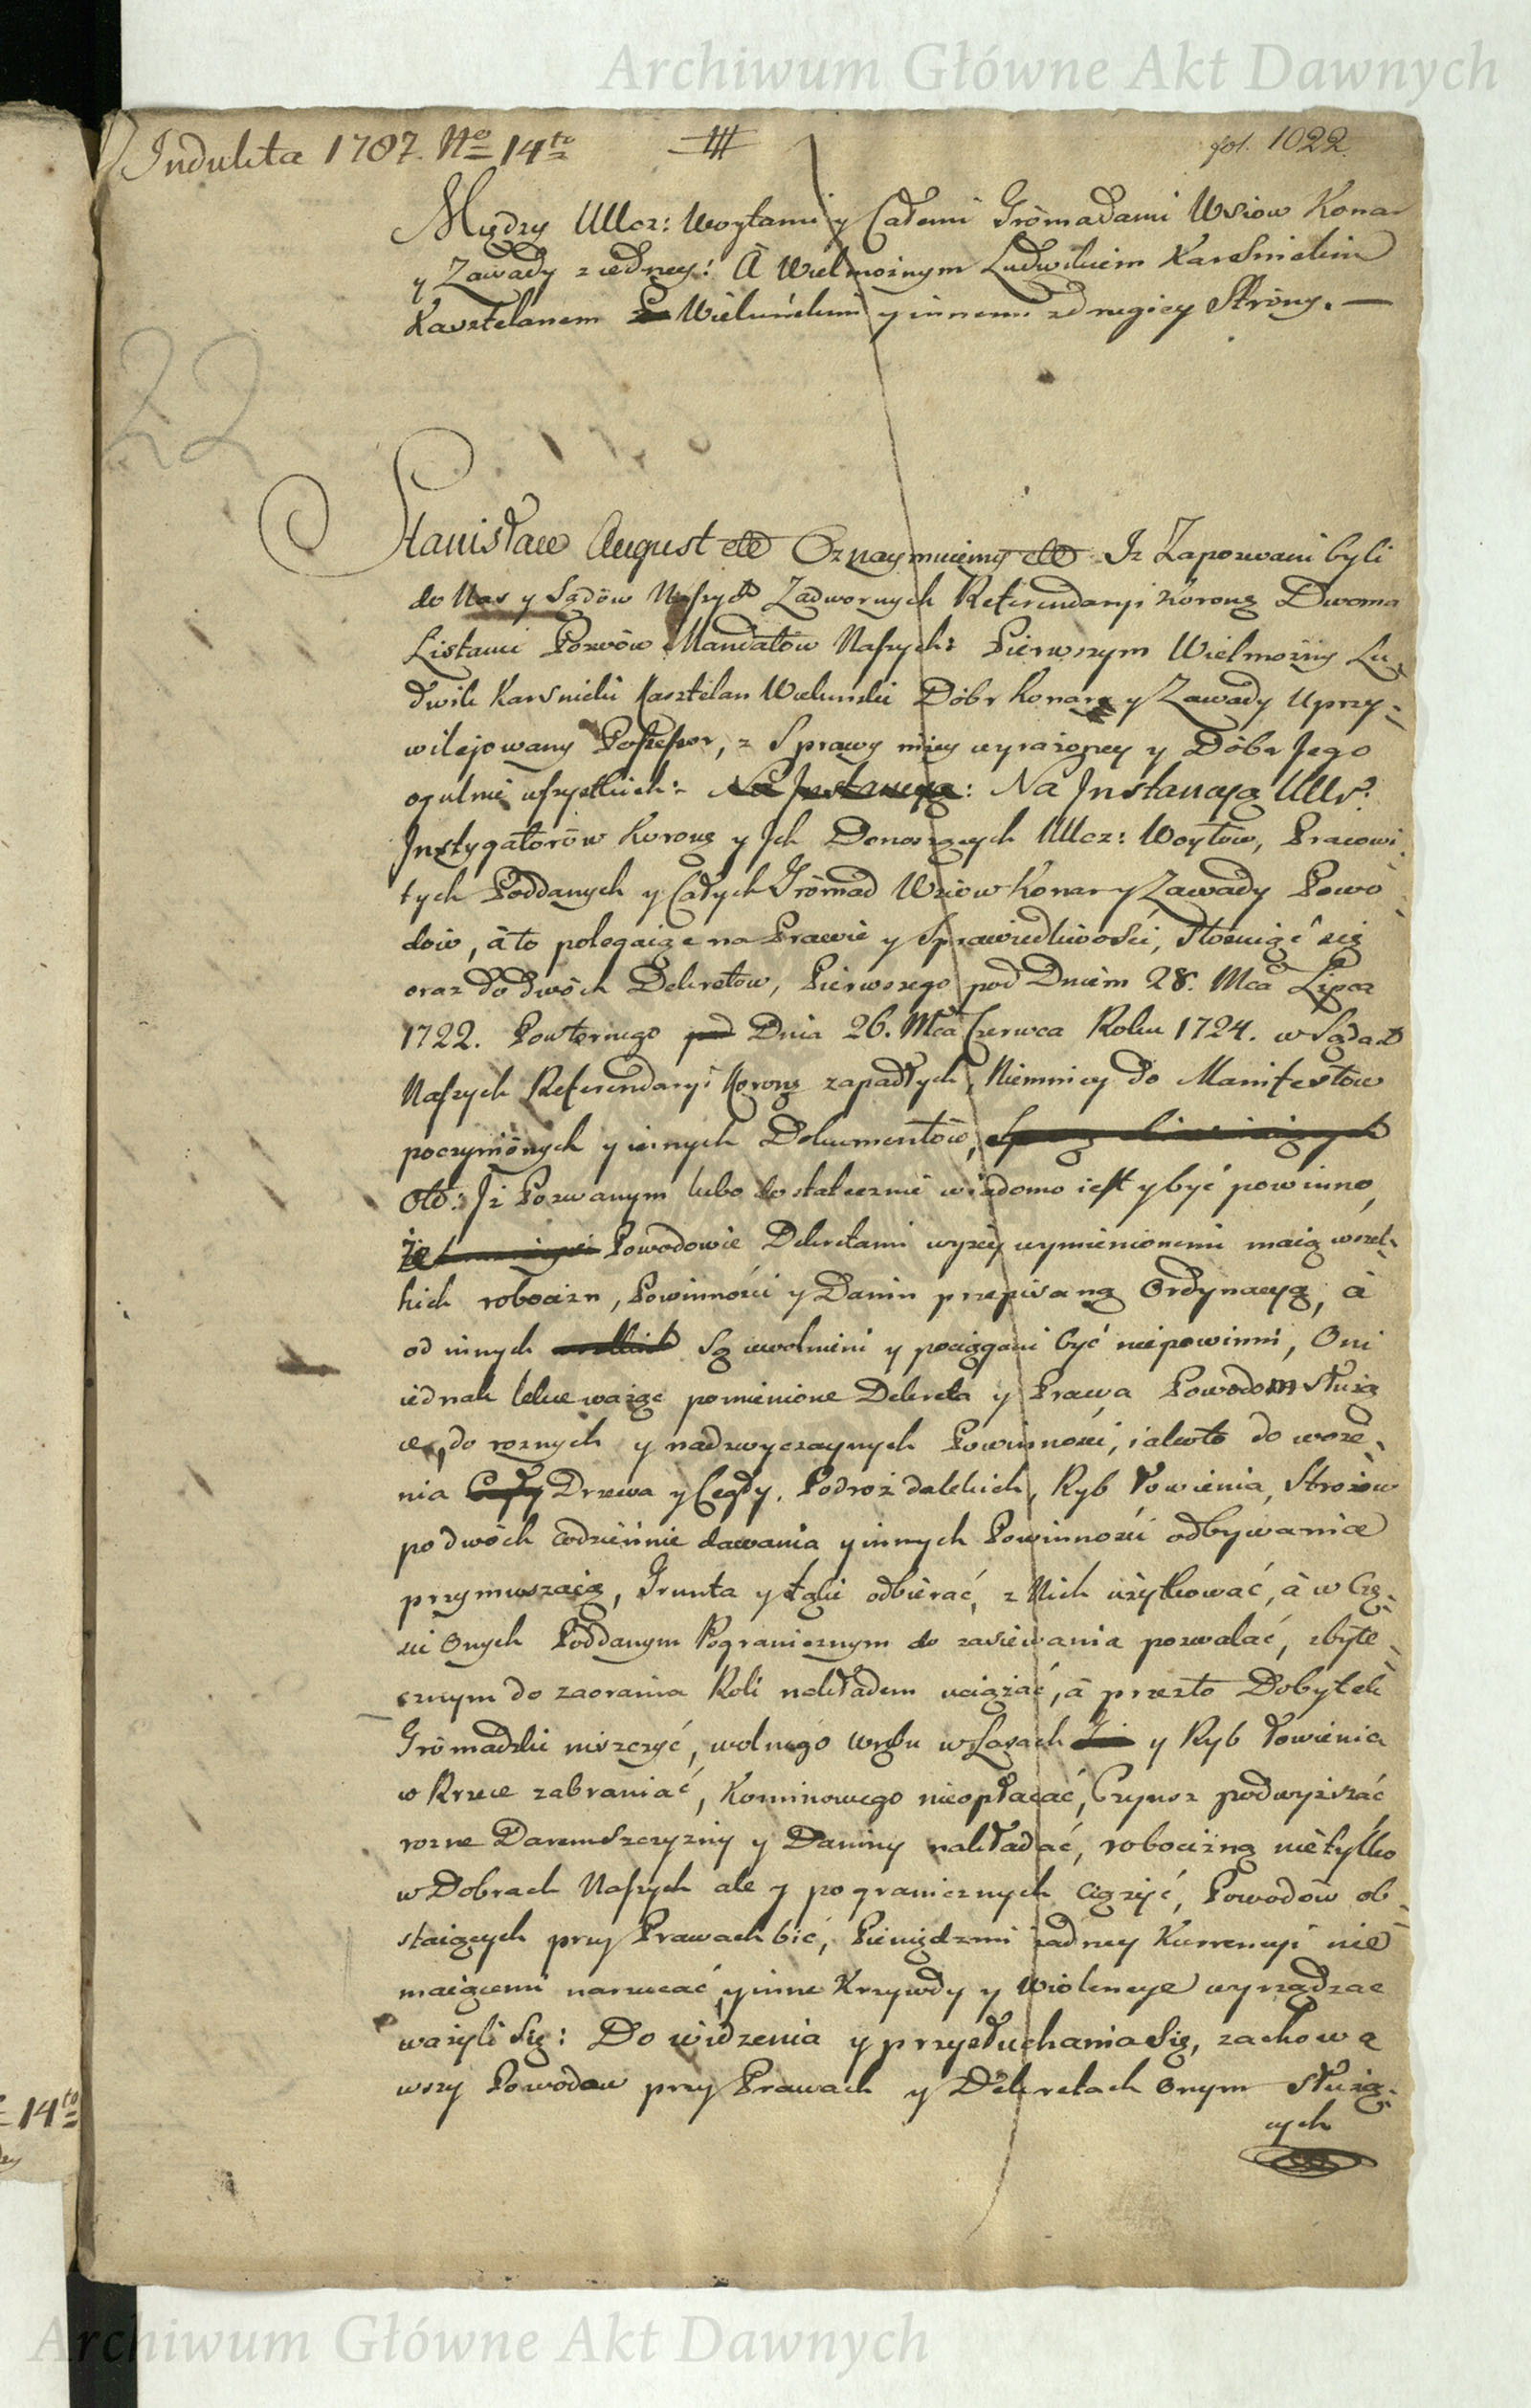 Archiwum Główne Akt Dawnych
Indukta 1787. No 14to
fol. 1022.
Między UUcz: Woytami y Całemi Grõmadami Wsiow Konar
y Zawady z iedney: à Wielmożnym Ludwikiem Karśnickim
Kasztelanem Wieluńskim y innemi zdrugiey Strony. —
22
Stanisław August etc Oznaymuiemy etc Iż Zapozwani byli
do Nas y Sądów Naszych Zadwornych Referendaryi Korony Dwoma
Listami Pozwów Mandatow Naszych: Pierwszym Wielmożny Lu-
dwik Karśnicki Kasztelan Wielunski Dóbr Konary y Zawady Uprzy-
wilejowany Possessor, z Sprawy niżey wyrażoney y Dóbr Jego
ogulnie wszystkich: Na Jnstancyą: Na Jnstancyą UUr:
Jnstygatorów Korony y Jch Donoszących UUcz: Woytów, Pracowi-
tych Poddanych y Całych Grõmad Wsiow Konar y Zawady Powo-
dów, à to polegaiąc na Prawie y Sprawiedliwości, stosuiąc się
oraz do dwóch Dekretow, Pierwszego pod Dniem 28. Mca Lipca
1722. Powtornego pod Dnia 26. Mca Czerwca Roku 1724. w Sądach
Naszych Referendaryi Korony zapadłych, Niemniey do Manifestow
poczyniõnych y innych Dokumentów,
Oto: Jż Pozwanym lubo dostatecznie wiadomo iest y być powinno,
że Powodowie Dekretami wyżey wymienionemi maią wszel-
kich robocizn, Powinności y Danin przepisaną Ordynacyą, à
od innych są uwolnieni y pociągani być niepowinni, Oni
iednak lekce ważąc pomienione Dekreta y Prawa Powodom służą
ce, do roznych y nadzwyczaynych Powinności, iakoto do woże-
nia Cegły Drzewa y Cegły, Podroż dalekich, Ryb łowienia, Strożow
po dwóch codziennie dawania y innych Powinności odbywania
przymuszaią, Grunta y Łąki odbierać, z Nich użytkować, à w Czę-
ści Onych Poddanym Pogranicznym do zasiewania pozwalać, zbyte-
cznym do zaorania Roli nakładem uciążać, à przezto Dobytek
Grõmadzki niszczyć, wolnego Wrębu w Lasach y Ryb łowienia
w Rzece zabraniać, Kominowego nieopłacać, Czynsz podwyższać
rozne Daremszczyzny y Daniny nakładać, robocizną nietylko
w Dobrach Naszych ale y pogranicznych Ciążyć, Powodów ob-
staiących przy Prawach bić, Pieniędzmi żadney Kurrencyi nie
maiącemi narzucać, y inne Krzywdy y Wiolencye wyrządzac
ważyli się: Do widzenia y przysłuchania Się, zachowa
wszy Powodow przy Prawach y Dekretach Onym służą-
cych
14to
Archiwum Główne Akt Dawnych